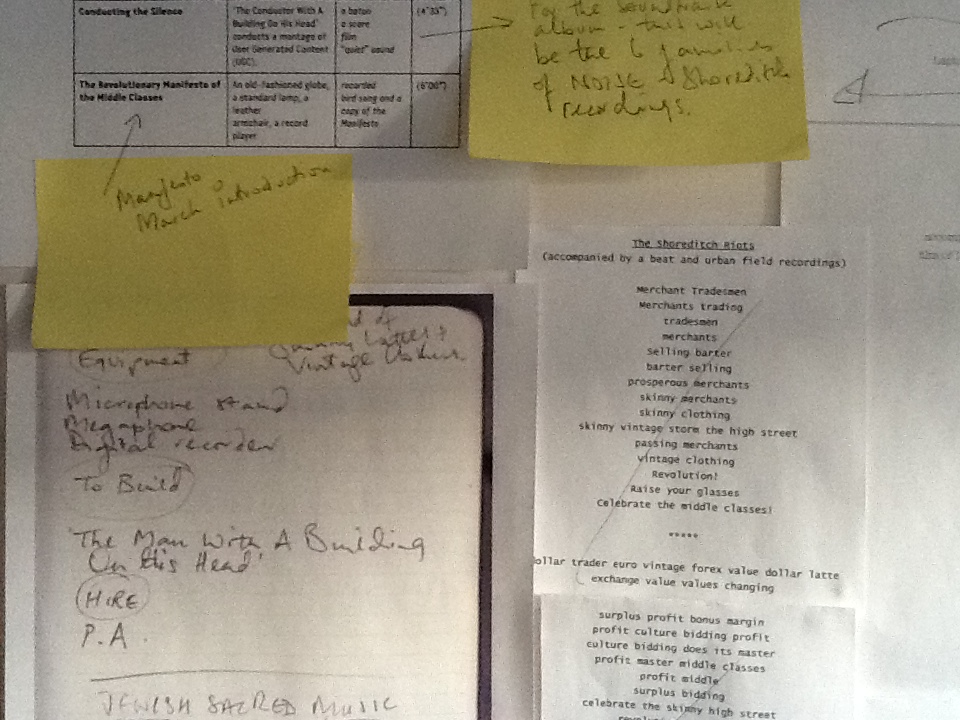 Conducting the Silence
'The Conductor With A
Building On His Head'
conducts a montage of
User Generated Content
(UGC).
a baton
a score
film
"quiet" sound
(4'33")
The Revolutionary Manifesto of
the Middle Classes
An old-fashioned globe,
a standard lamp, a
leather
armchair, a record
player
recorded
bird song and a
copy of the
Manifesto
(6'00")
For the Soundtrack
album - this will
be the 6 families
of NOISE + Shoreditch
recordings.
Manifesto
March introduction
Equipment
Vintage
Microphone stand
Megaphone
Digital recorder
To Build
'The Man With A Building
On His Head'
HIRE
P.A.
JEWISH SACRED MUSIC
The Shoreditch Riots
(accompanied by a beat and urban field recordings)
Merchant Tradesmen
Merchants trading
tradesmen
merchants
Selling barter
barter selling
prosperous merchants
skinny merchants
skinny clothing
skinny vintage storm the high street
passing merchants
vintage clothing
Revolution!
Raise your glasses
Celebrate the middle classes!
*****
dollar trader euro vintage forex value dollar latte
exchange value values changing
surplus profit bonus margin
profit culture bidding profit
culture bidding does its master
profit master middle classes
profit middle
surplus bidding
celebrate the skinny high street